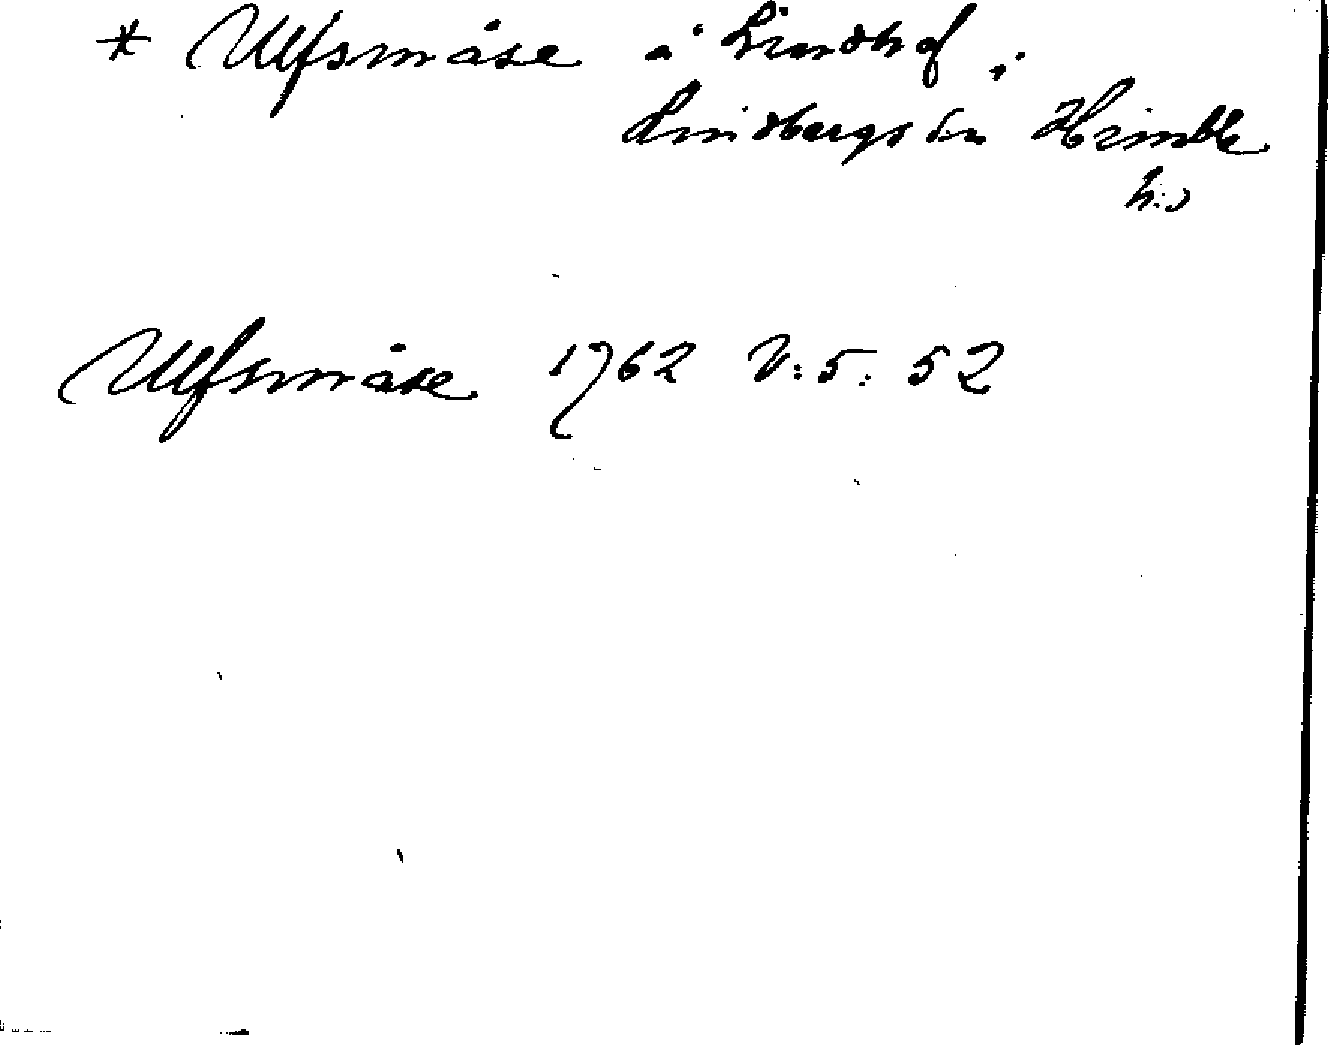 * Ulfsmåse å Lindhof,
Lindbergs sn Himble
h:d
Ulfsmåse 1762 V: 5: 52